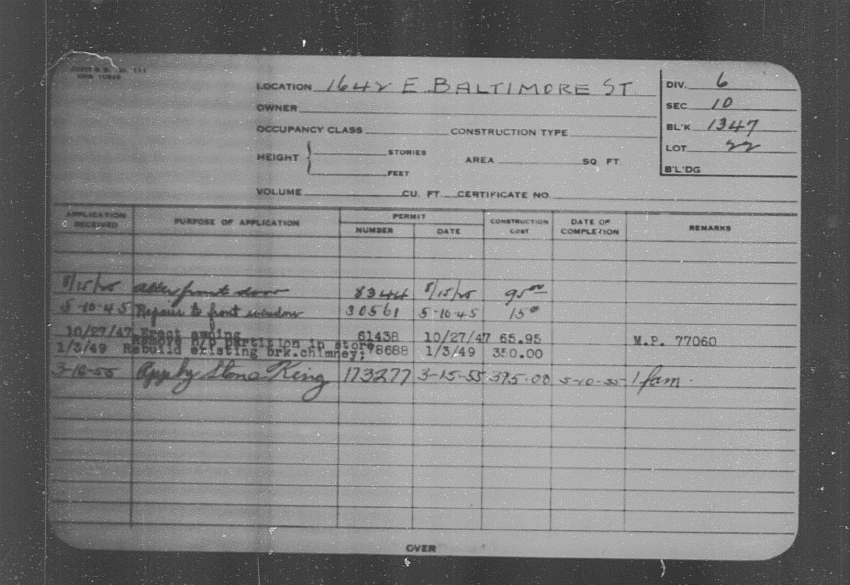 LOCATION 1642 E BALTIMORE ST. DIV. 6
OWNER SEC 10
OCCUPANCY CLASS CONSTRUCTION TYPE BL'K 1347
HEIGHT { STORIES AREA SQ. FT. LOT 22
FEET B'L'DG
VOLUME CU. FT. CERTIFICATE NO.
APPLICATION RECEIVED PURPOSE OF APPLICATION PERMIT NUMBER DATE CONSTRUCTION COST DATE OF COMPLETION REMARKS
8/15/25 Alter front door 8344 8/15/25 95.00
5-10-45 Repairs to front window 30561 5-10-45 15.00
10/27/47 Erect awning 61438 10/27/47 65.95 M.P. 77060
Remove n/p partition in store
1/3/49 Rebuild existing brk.chimney; 78688 1/3/49 350.00
3-16-55 Apply Stone King 173277 3-15-55 395.00 5-10-55 1 fam.
OVER